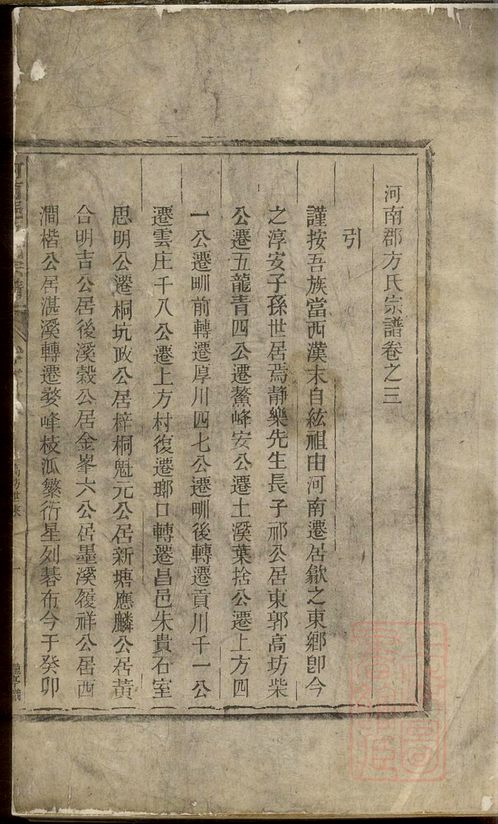 河南郡方氏宗譜卷之三
引
謹按吾族當西漢末自紘祖由河南遷居歙之東鄉卽今
之淳安子孫世居焉靜樂先生長子祁公居東郭高坊柴
公遷五龍青四公遷鰲峰安公遷土溪葉捨公遷上方四
一公遷畊前轉遷厚川四七公遷畊後轉遷貢川千一公
遷雲庄千八公遷上方村復遷瑯口轉遷昌邑朱貴石室
思明公遷桐坑政公居梓桐魁元公居新塘應麟公居黃
合明吉公居後溪穀公居金峯六公居墨溪復祥公居西
澗楷公居湛溪轉遷婺峰枝派繁衍星列碁布今于癸卯